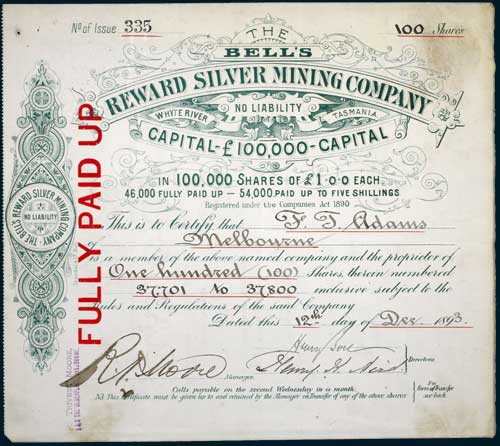 No of Issue 335
100 Shares
THE
BELL'S
REWARD SILVER MINING COMPANY
NO LIABILITY
WHYTE RIVER TASMANIA
CAPITAL-£100,000-CAPITAL
IN 100,000 SHARES OF £1·0·0 EACH
46,000 FULLY PAID UP — 54,000 PAID UP TO FIVE SHILLINGS
Registered under the Companies Act 1890
This is to Certify that F. T. Adams
of Melbourne
Is a member of the above named company and the proprietor of
One hundred (100) Shares, therein numbered
37.701 to 37.800 inclusive subject to the
Rules and Regulations of the said Company
Dated this 12th day of Dec. 1893
Directors
Manager
Calls payable on the second Wednesday in a month.
N.B. This Certificate must be given up to and retained by the Manager on Transfer of any of the above shares
For Form of Transfer see back
THE BELL'S REWARD SILVER MINING COMPANY
NO LIABILITY
FULLY PAID UP